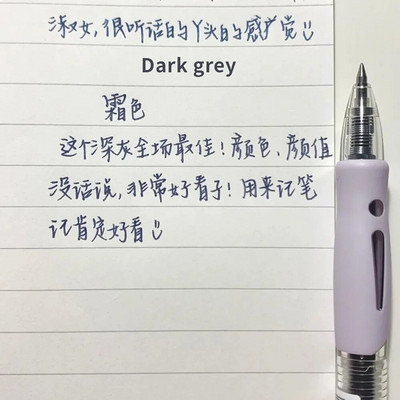 淑女，很听话的丫头的感觉
Dark grey
霜色
这个深灰全场最佳！颜色、颜值
没话说，非常好看子！用来记笔
记肯定好看